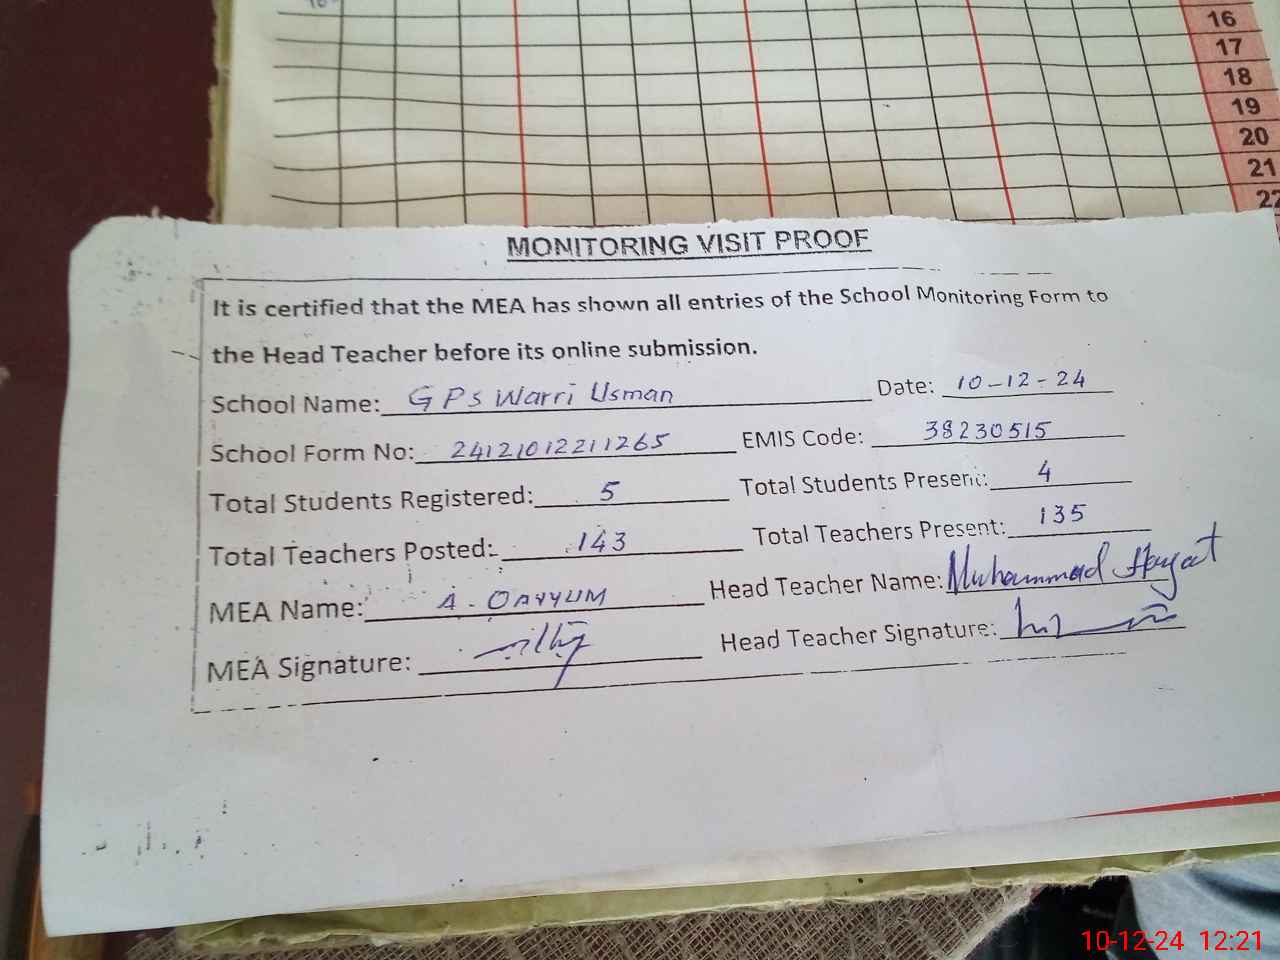 16
17
18
19
20
21
22
MONITORING VISIT PROOF
It is certified that the MEA has shown all entries of the School Monitoring Form to
the Head Teacher before its online submission.
School Name: GPS Warri Usman Date: 10-12-24
School Form No: 24121012211265 EMIS Code: 38230515
Total Students Registered: 5 Total Students Present: 4
Total Teachers Posted: 143 Total Teachers Present: 135
MEA Name: A. QAYYUM Head Teacher Name: Muhammad Hayat
MEA Signature: Head Teacher Signature:
10-12-24 12:21